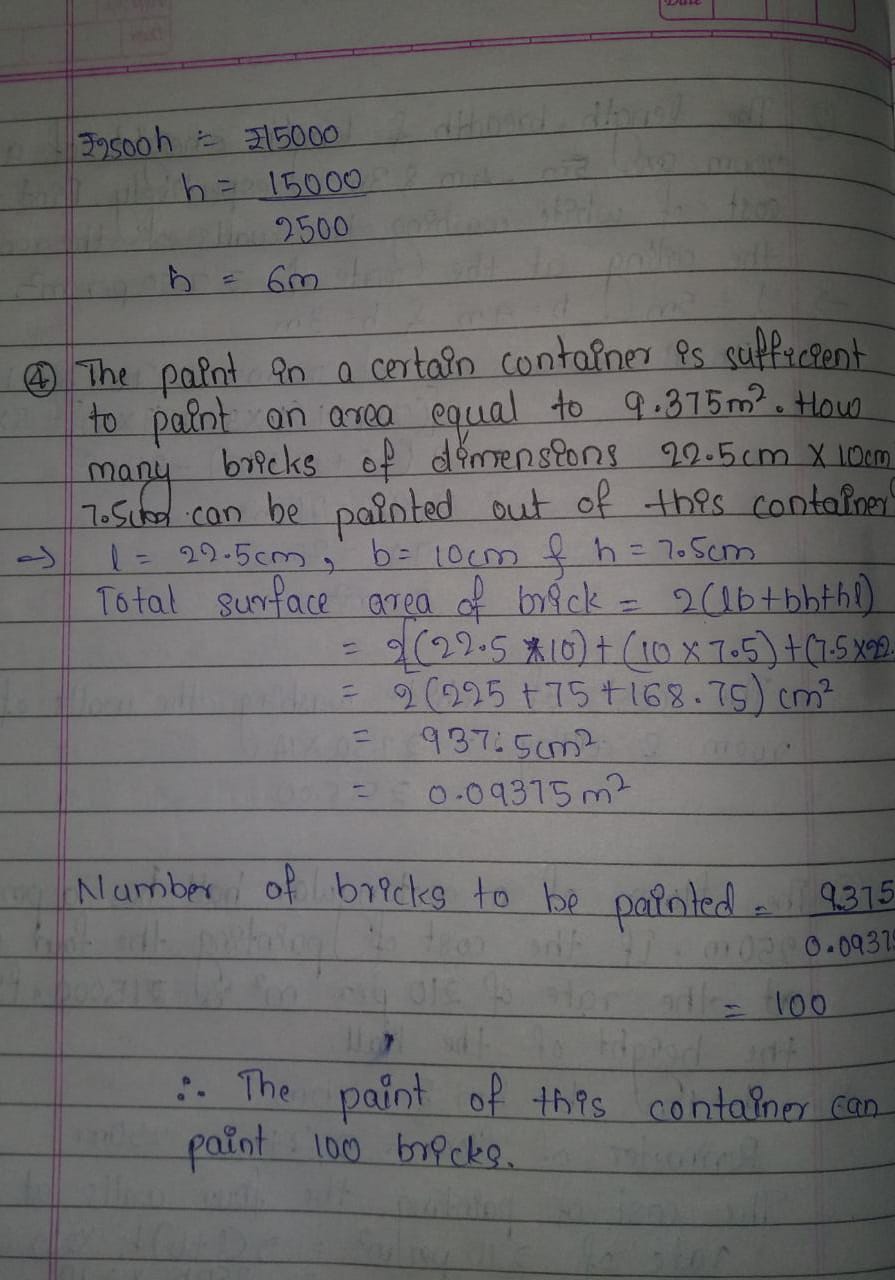 ₹2500h = ₹15000
h = 15000
2500
h = 6m
④ The paint in a certain container is sufficient
to paint an area equal to 9.375m². How
many bricks of dimensions 22.5cm × 10cm
7.5cm can be painted out of this container
⇒ l = 22.5cm, b= 10cm & h = 7.5cm
Total surface area of brick = 2(lb+bh+hl)
= 2[(22.5 × 10) + (10 × 7.5) + (7.5 × 22.
= 2(225 + 75 + 168.75) cm²
= 937.5cm²
= 0.09375 m²
Number of bricks to be painted = 9.375
0.0937
= 100
∴ The paint of this container can
paint 100 bricks.